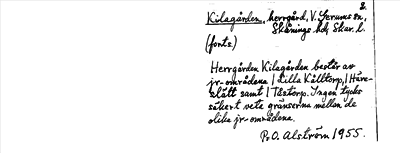 2.
Kilagården, herrgård, V. Gerums sn,
Skånings hd, Skar. l.
(forts.)
Herrgården Kilagården består av
jr-områdena | Lilla Kålltorp, |
slätt samt | Tåstorp. Ingen tycks
säkert veta gränserna mellan de
olika jr-områdena.
P. O. Alström 1955.